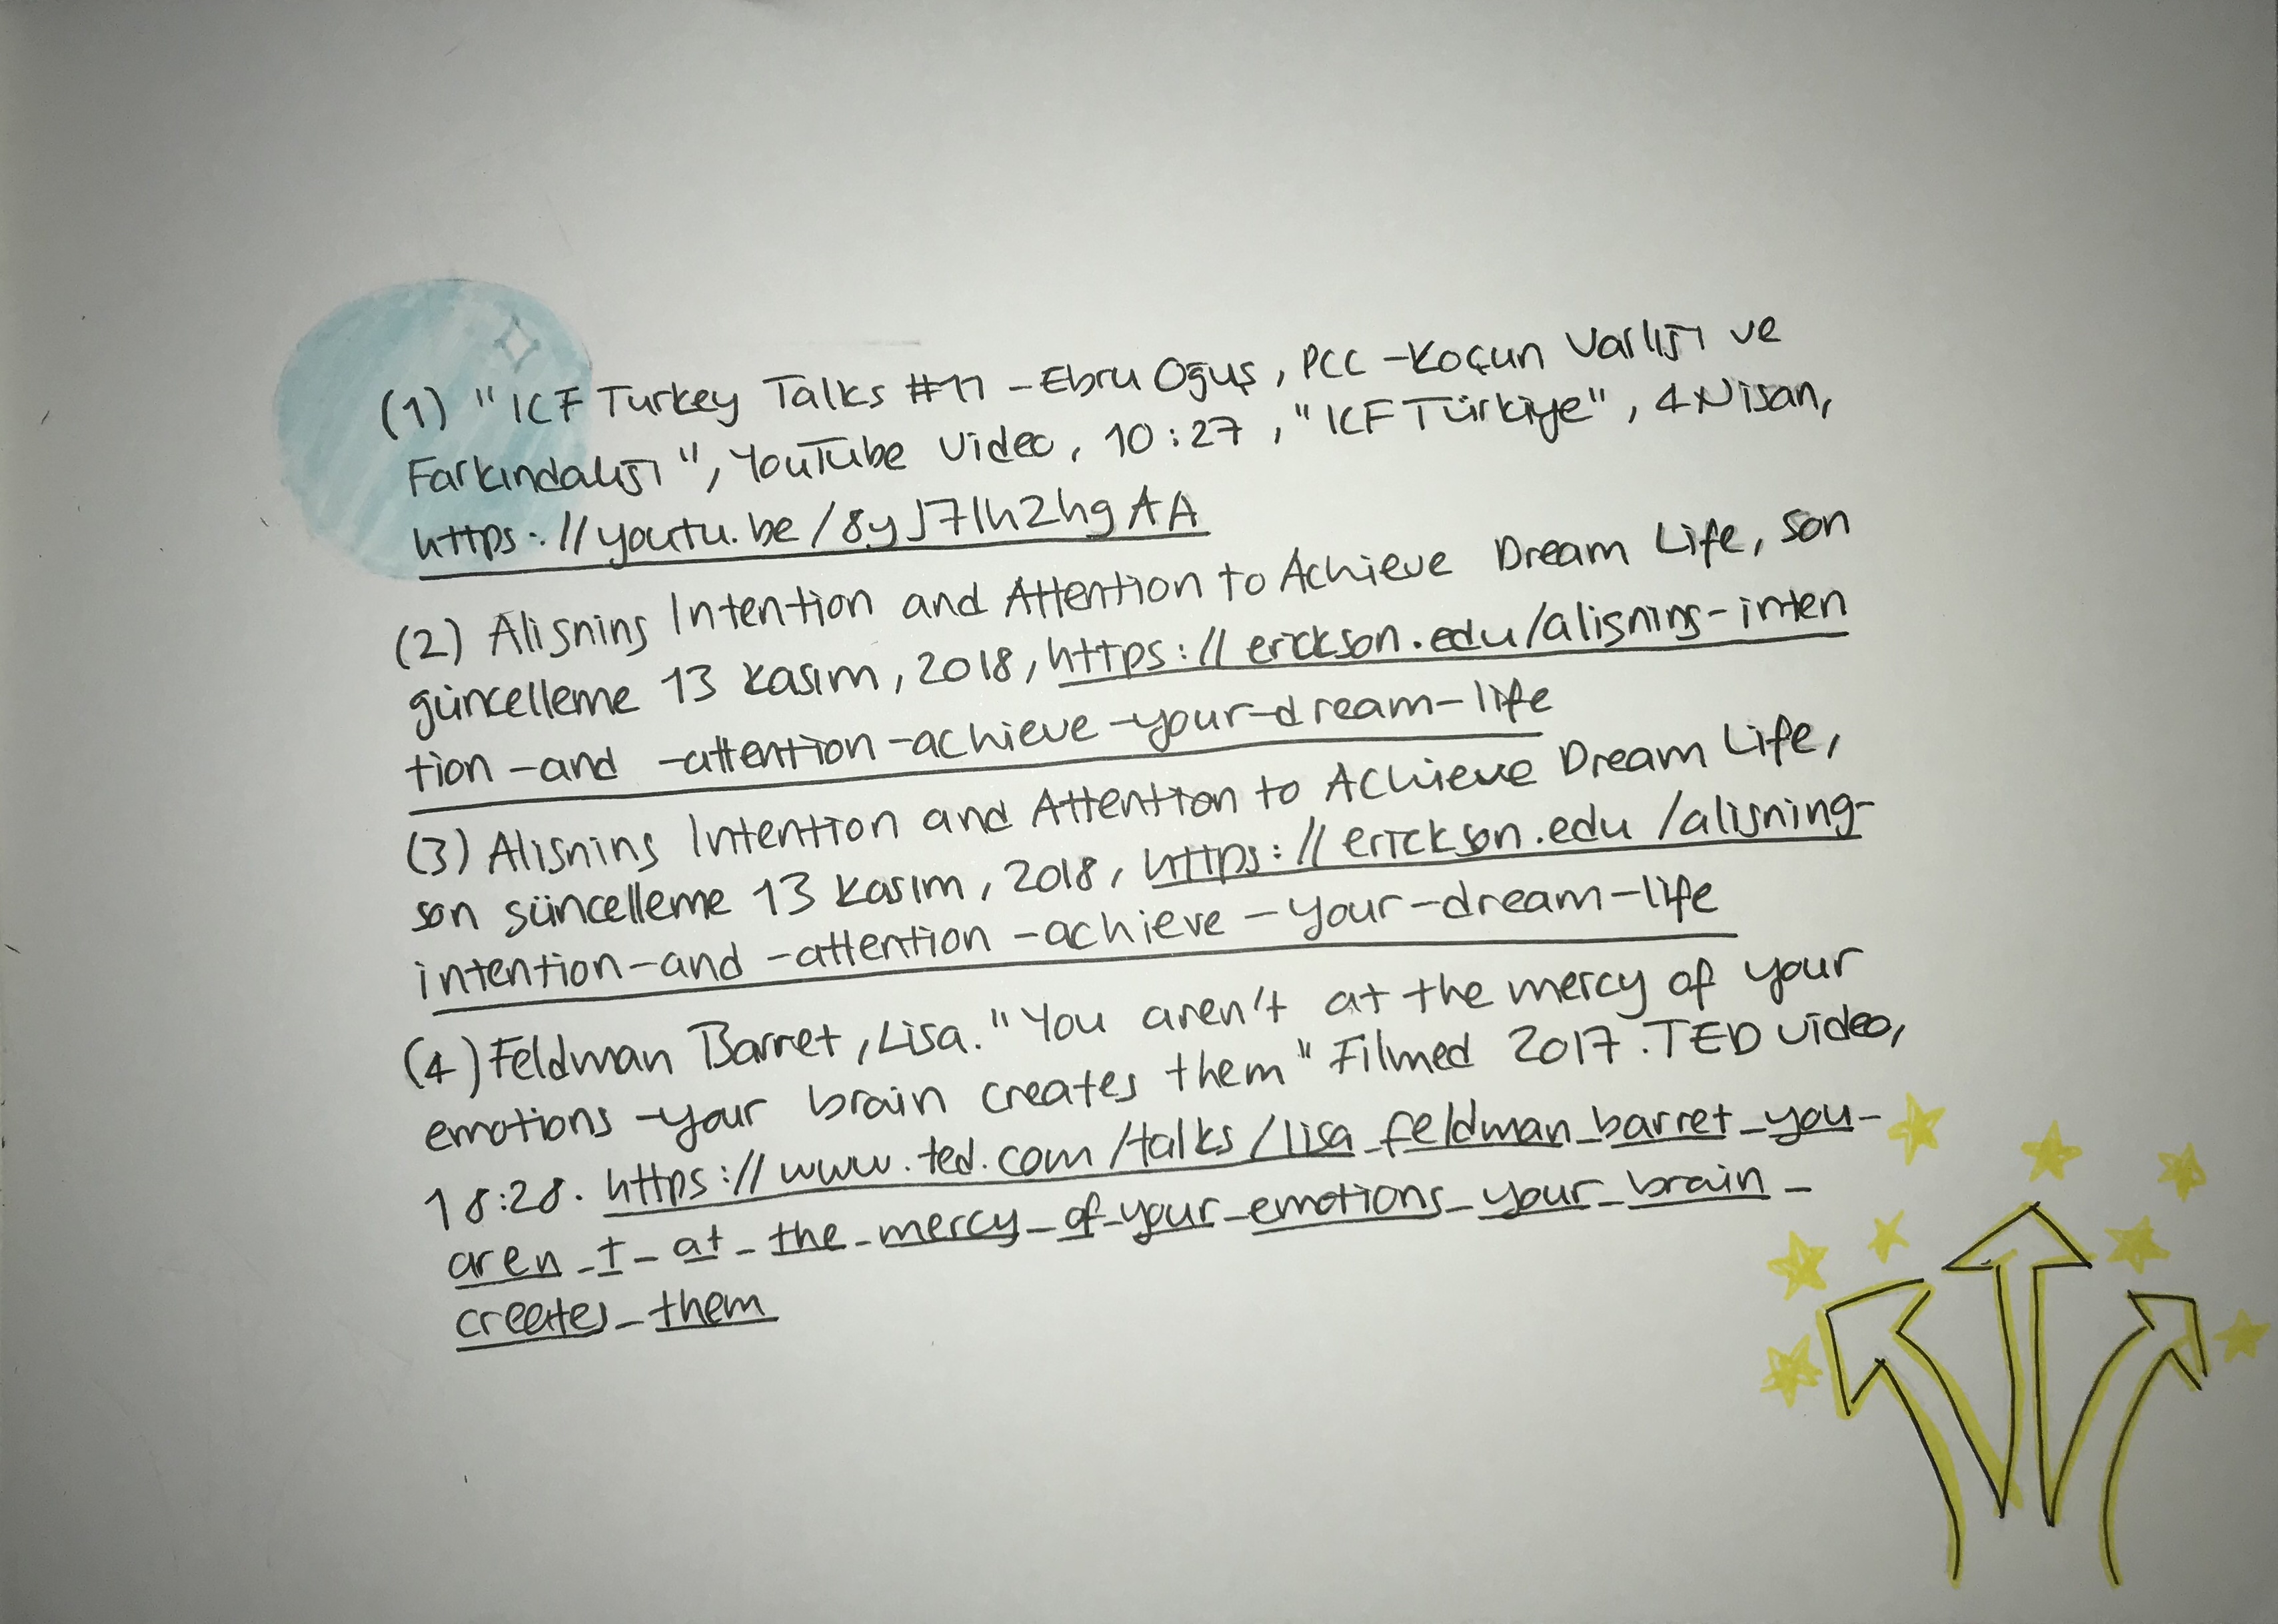 (1) "ICF Turkey Talks #11 - Ebru Oğuş, PCC - Koçun Varlığı ve
Farkındalığı", YouTube Video, 10:27, "ICF Türkiye", 4 Nisan,
https://youtu.be/8yJ7lh2hgAA
(2) Aligning Intention and Attention to Achieve Dream Life, son
güncelleme 13 Kasım, 2018, https://erickson.edu/aligning-inten
tion-and-attention-achieve-your-dream-life
(3) Aligning Intention and Attention to Achieve Dream Life,
son güncelleme 13 Kasım, 2018, https://erickson.edu/aligning-
intention-and-attention-achieve-your-dream-life
(4) Feldman Barret, Lisa. "You aren't at the mercy of your
emotions - your brain creates them" Filmed 2017. TED video,
18:28. https://www.ted.com/talks/lisa_feldman_barret_you-
aren_t_at_the_mercy_of_your_emotions_your_brain_
creates_them